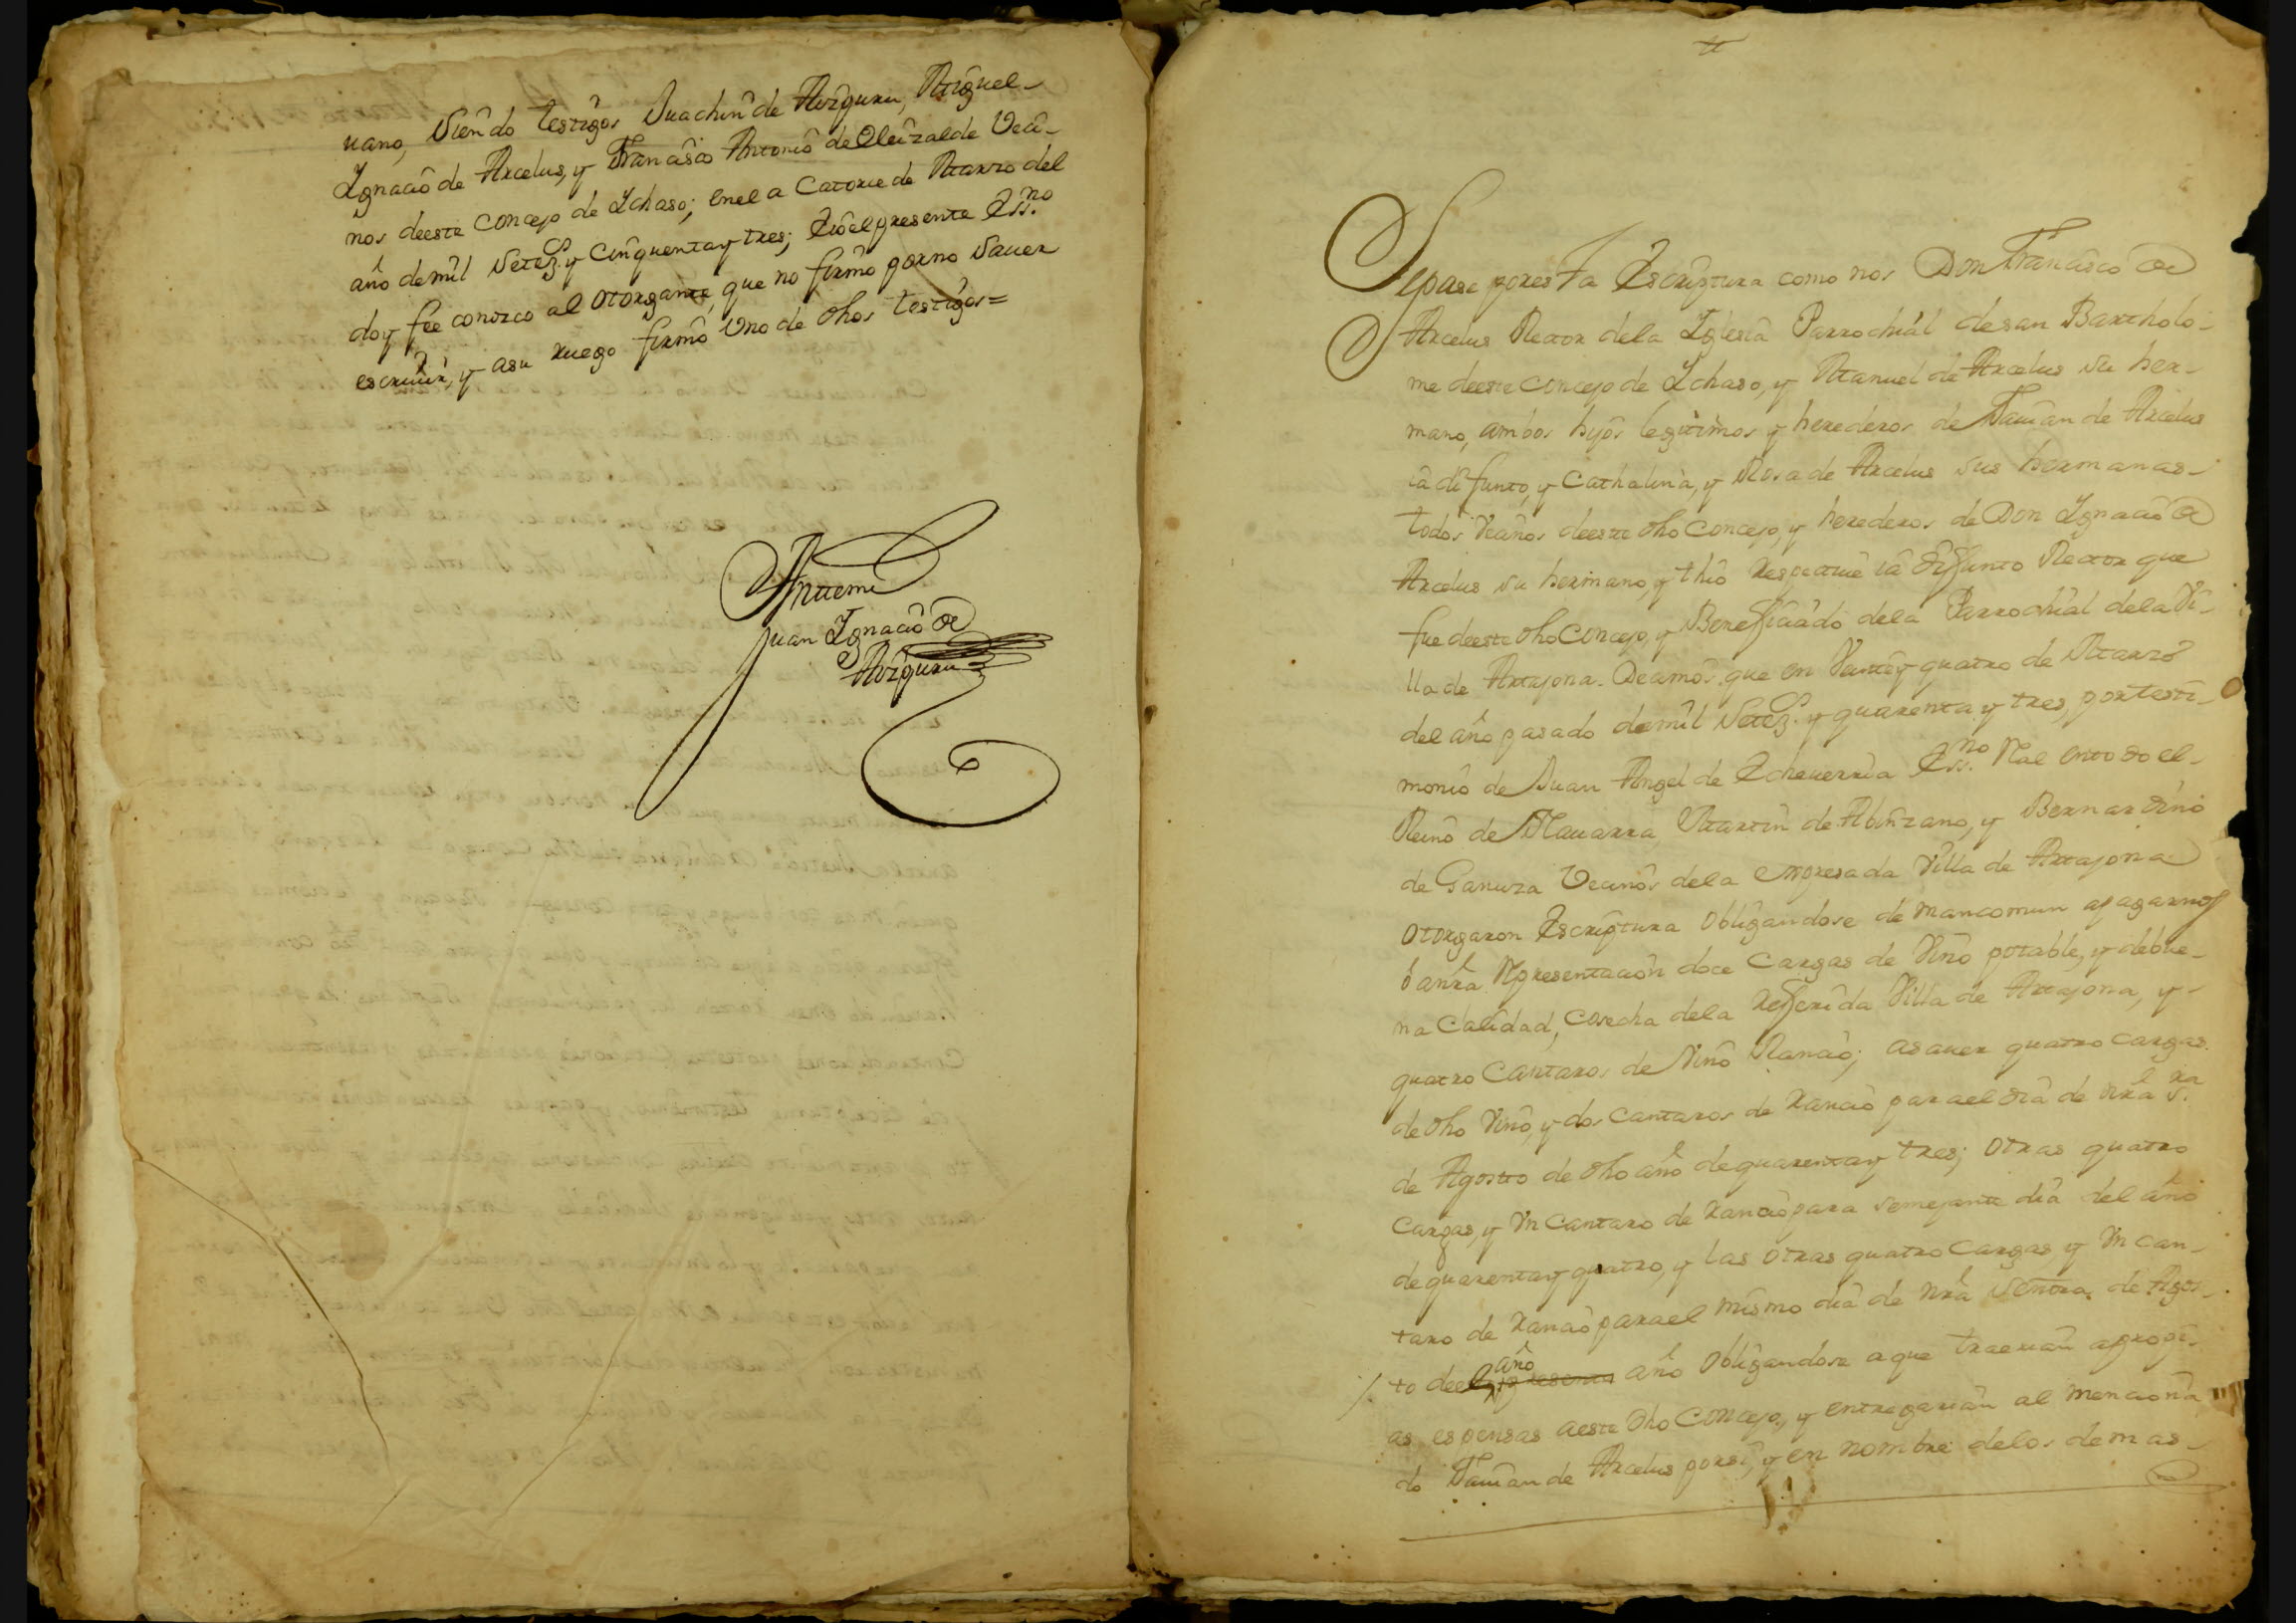 uano, siendo testigos Juachin de Aizquru, Miguel-
Ignacio de Arcelus, y Francisco Antonio de Oleizalde Veci-
nos deeste concejo de Ichaso; en el a Catorce de Marzo del
año de mil Setez.s y cinquentay tres; Eio el presente Ess.no
doy fee conozco al otorgante, que no firmó por no Sauer
escriuir, y asu ruego firmó Uno de dhos testigos=
Antemi
Juan Ignacio de
Aizquru
Sepase por esta Escriptura como nos Don Francisco de
Arcelus Rector dela Iglesia Parrochial desan Bartholo-
me deeste concejo de Ichaso, y Manuel de Arcelus su her-
mano, ambos hijos legitimos y herederos de Damian de Arcelus
ia difunto, y Cathalina, y Rosa de Arcelus sus hermanas-
todos Vecinos deeste dho concejo, y herederos de Don Ignacio de
Arcelus su hermano, y thio respectiue ia difunto Rector que
fue deeste dho concejo, y Benefficiado dela Parrochial dela Vi-
lla de Artajona. Decimos que en Veinte y quatro de Marzo
del año pasado demil Setez.s y quarenta y tres, por testi-
monio de Juan Angel de Echeuerria Ess.no Real en todo el-
Reino de Nauarra, Martin de Abinzano, y Bernardino
de Ganuza Vecinos dela expresada Villa de Artajona
otorgaron Escriptura obligandose de mancomun apagarnos
ó anra Representacion doce Cargas de Vino potable, y debue-
na calidad, cosecha dela Refferida Villa de Artajona, y-
quatro Cantaros de Vino Rancio; asauer quatro cargas
de dho Vino, y dos Cantaros de rancio parael dia de nra S.ra
de Agosto de dho año dequarentay tres; otras quatro
Cargas, y Vn Cantaro de rancio para semejante dia del año
dequarentay quatro, y las otras quatro Cargas y Vn can-
taro de rancio parael mismo dia de nra Señora de Agos-
to deel año año obligandose aque traerian apropi-
as espensas aeste dho concejo, y entregarian al menciona
do Damian de Arcelus porsi, y en nombre delos demas-